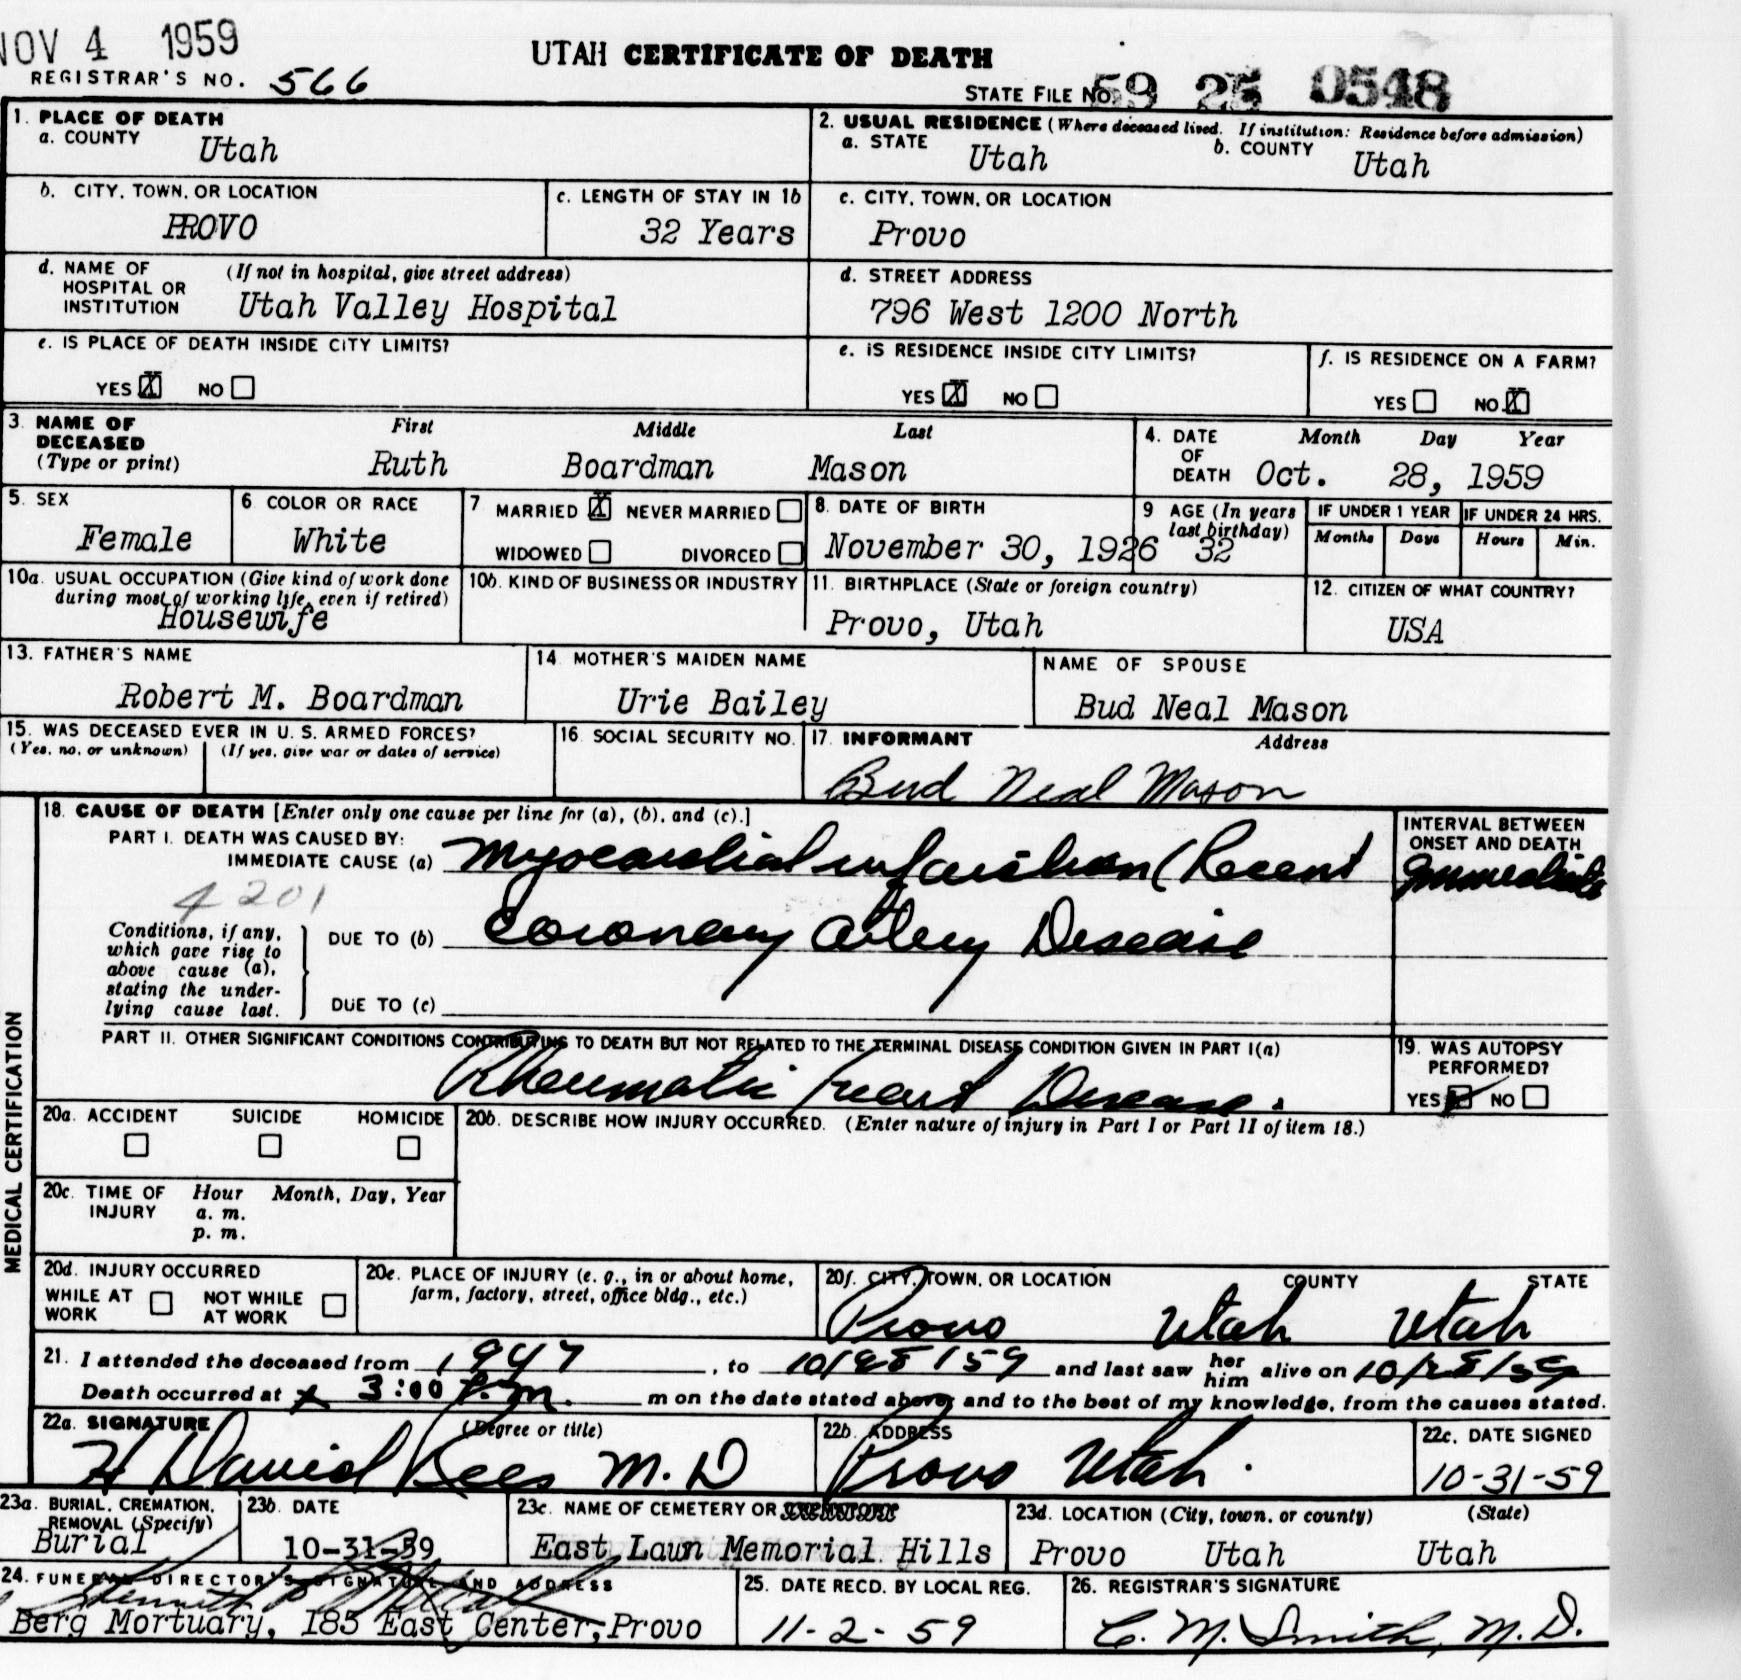 NOV 4 1959
UTAH CERTIFICATE OF DEATH
REGISTRAR'S NO. 566
STATE FILE NO. 59 25 0548
1. PLACE OF DEATH
a. COUNTY Utah
2. USUAL RESIDENCE (Where deceased lived. If institution: Residence before admission)
a. STATE Utah b. COUNTY Utah
b. CITY, TOWN, OR LOCATION PROVO
c. LENGTH OF STAY IN 1b 32 Years
c. CITY, TOWN, OR LOCATION Provo
d. NAME OF HOSPITAL OR INSTITUTION (If not in hospital, give street address) Utah Valley Hospital
d. STREET ADDRESS 796 West 1200 North
e. IS PLACE OF DEATH INSIDE CITY LIMITS?
YES X NO
e. IS RESIDENCE INSIDE CITY LIMITS?
YES X NO
f. IS RESIDENCE ON A FARM?
YES NO X
3. NAME OF DECEASED (Type or print)
First Middle Last
Ruth Boardman Mason
4. DATE OF DEATH Month Day Year
Oct. 28, 1959
5. SEX Female
6 COLOR OR RACE White
7 MARRIED X NEVER MARRIED
WIDOWED DIVORCED
8. DATE OF BIRTH November 30, 1926
9 AGE (In years last birthday) 32
IF UNDER 1 YEAR Months Days
IF UNDER 24 HRS. Hours Min.
10a. USUAL OCCUPATION (Give kind of work done during most of working life, even if retired) Housewife
10b. KIND OF BUSINESS OR INDUSTRY
11. BIRTHPLACE (State or foreign country) Provo, Utah
12. CITIZEN OF WHAT COUNTRY? USA
13. FATHER'S NAME Robert M. Boardman
14 MOTHER'S MAIDEN NAME Urie Bailey
NAME OF SPOUSE Bud Neal Mason
15. WAS DECEASED EVER IN U. S. ARMED FORCES?
(Yes, no, or unknown) (If yes, give war or dates of service)
16. SOCIAL SECURITY NO.
17. INFORMANT Address
Bud Neal Mason
MEDICAL CERTIFICATION
18. CAUSE OF DEATH [Enter only one cause per line for (a), (b), and (c).]
INTERVAL BETWEEN ONSET AND DEATH
PART I. DEATH WAS CAUSED BY:
IMMEDIATE CAUSE (a) Myocardial infarction (Recent Immediate
4201
Conditions, if any, which gave rise to above cause (a), stating the underlying cause last.
DUE TO (b) Coronary artery Disease
DUE TO (c)
PART II. OTHER SIGNIFICANT CONDITIONS CONTRIBUTING TO DEATH BUT NOT RELATED TO THE TERMINAL DISEASE CONDITION GIVEN IN PART I(a)
Rheumatic heart Disease.
19. WAS AUTOPSY PERFORMED?
YES X NO
20a. ACCIDENT SUICIDE HOMICIDE
20b. DESCRIBE HOW INJURY OCCURRED. (Enter nature of injury in Part I or Part II of item 18.)
20c. TIME OF INJURY Hour a. m. p. m. Month, Day, Year
20d. INJURY OCCURRED
WHILE AT WORK NOT WHILE AT WORK
20e. PLACE OF INJURY (e. g., in or about home, farm, factory, street, office bldg., etc.)
20f. CITY, TOWN, OR LOCATION COUNTY STATE
Provo Utah Utah
21. I attended the deceased from 1947, to 10/28/59 and last saw her him alive on 10/28/59
Death occurred at 3:00 P.m. m on the date stated above; and to the best of my knowledge, from the causes stated.
22a. SIGNATURE (Degree or title)
H David Rees M.D
22b. ADDRESS
Provo Utah.
22c. DATE SIGNED
10-31-59
23a. BURIAL, CREMATION, REMOVAL (Specify) Burial
23b. DATE 10-31-59
23c. NAME OF CEMETERY OR CREMATORY East Lawn Memorial Hills
23d. LOCATION (City, town, or county) (State)
Provo Utah Utah
24. FUNERAL DIRECTOR'S SIGNATURE AND ADDRESS
Berg Mortuary, 185 East Center, Provo
25. DATE RECD. BY LOCAL REG.
11-2-59
26. REGISTRAR'S SIGNATURE
C. M. Smith, M.D.